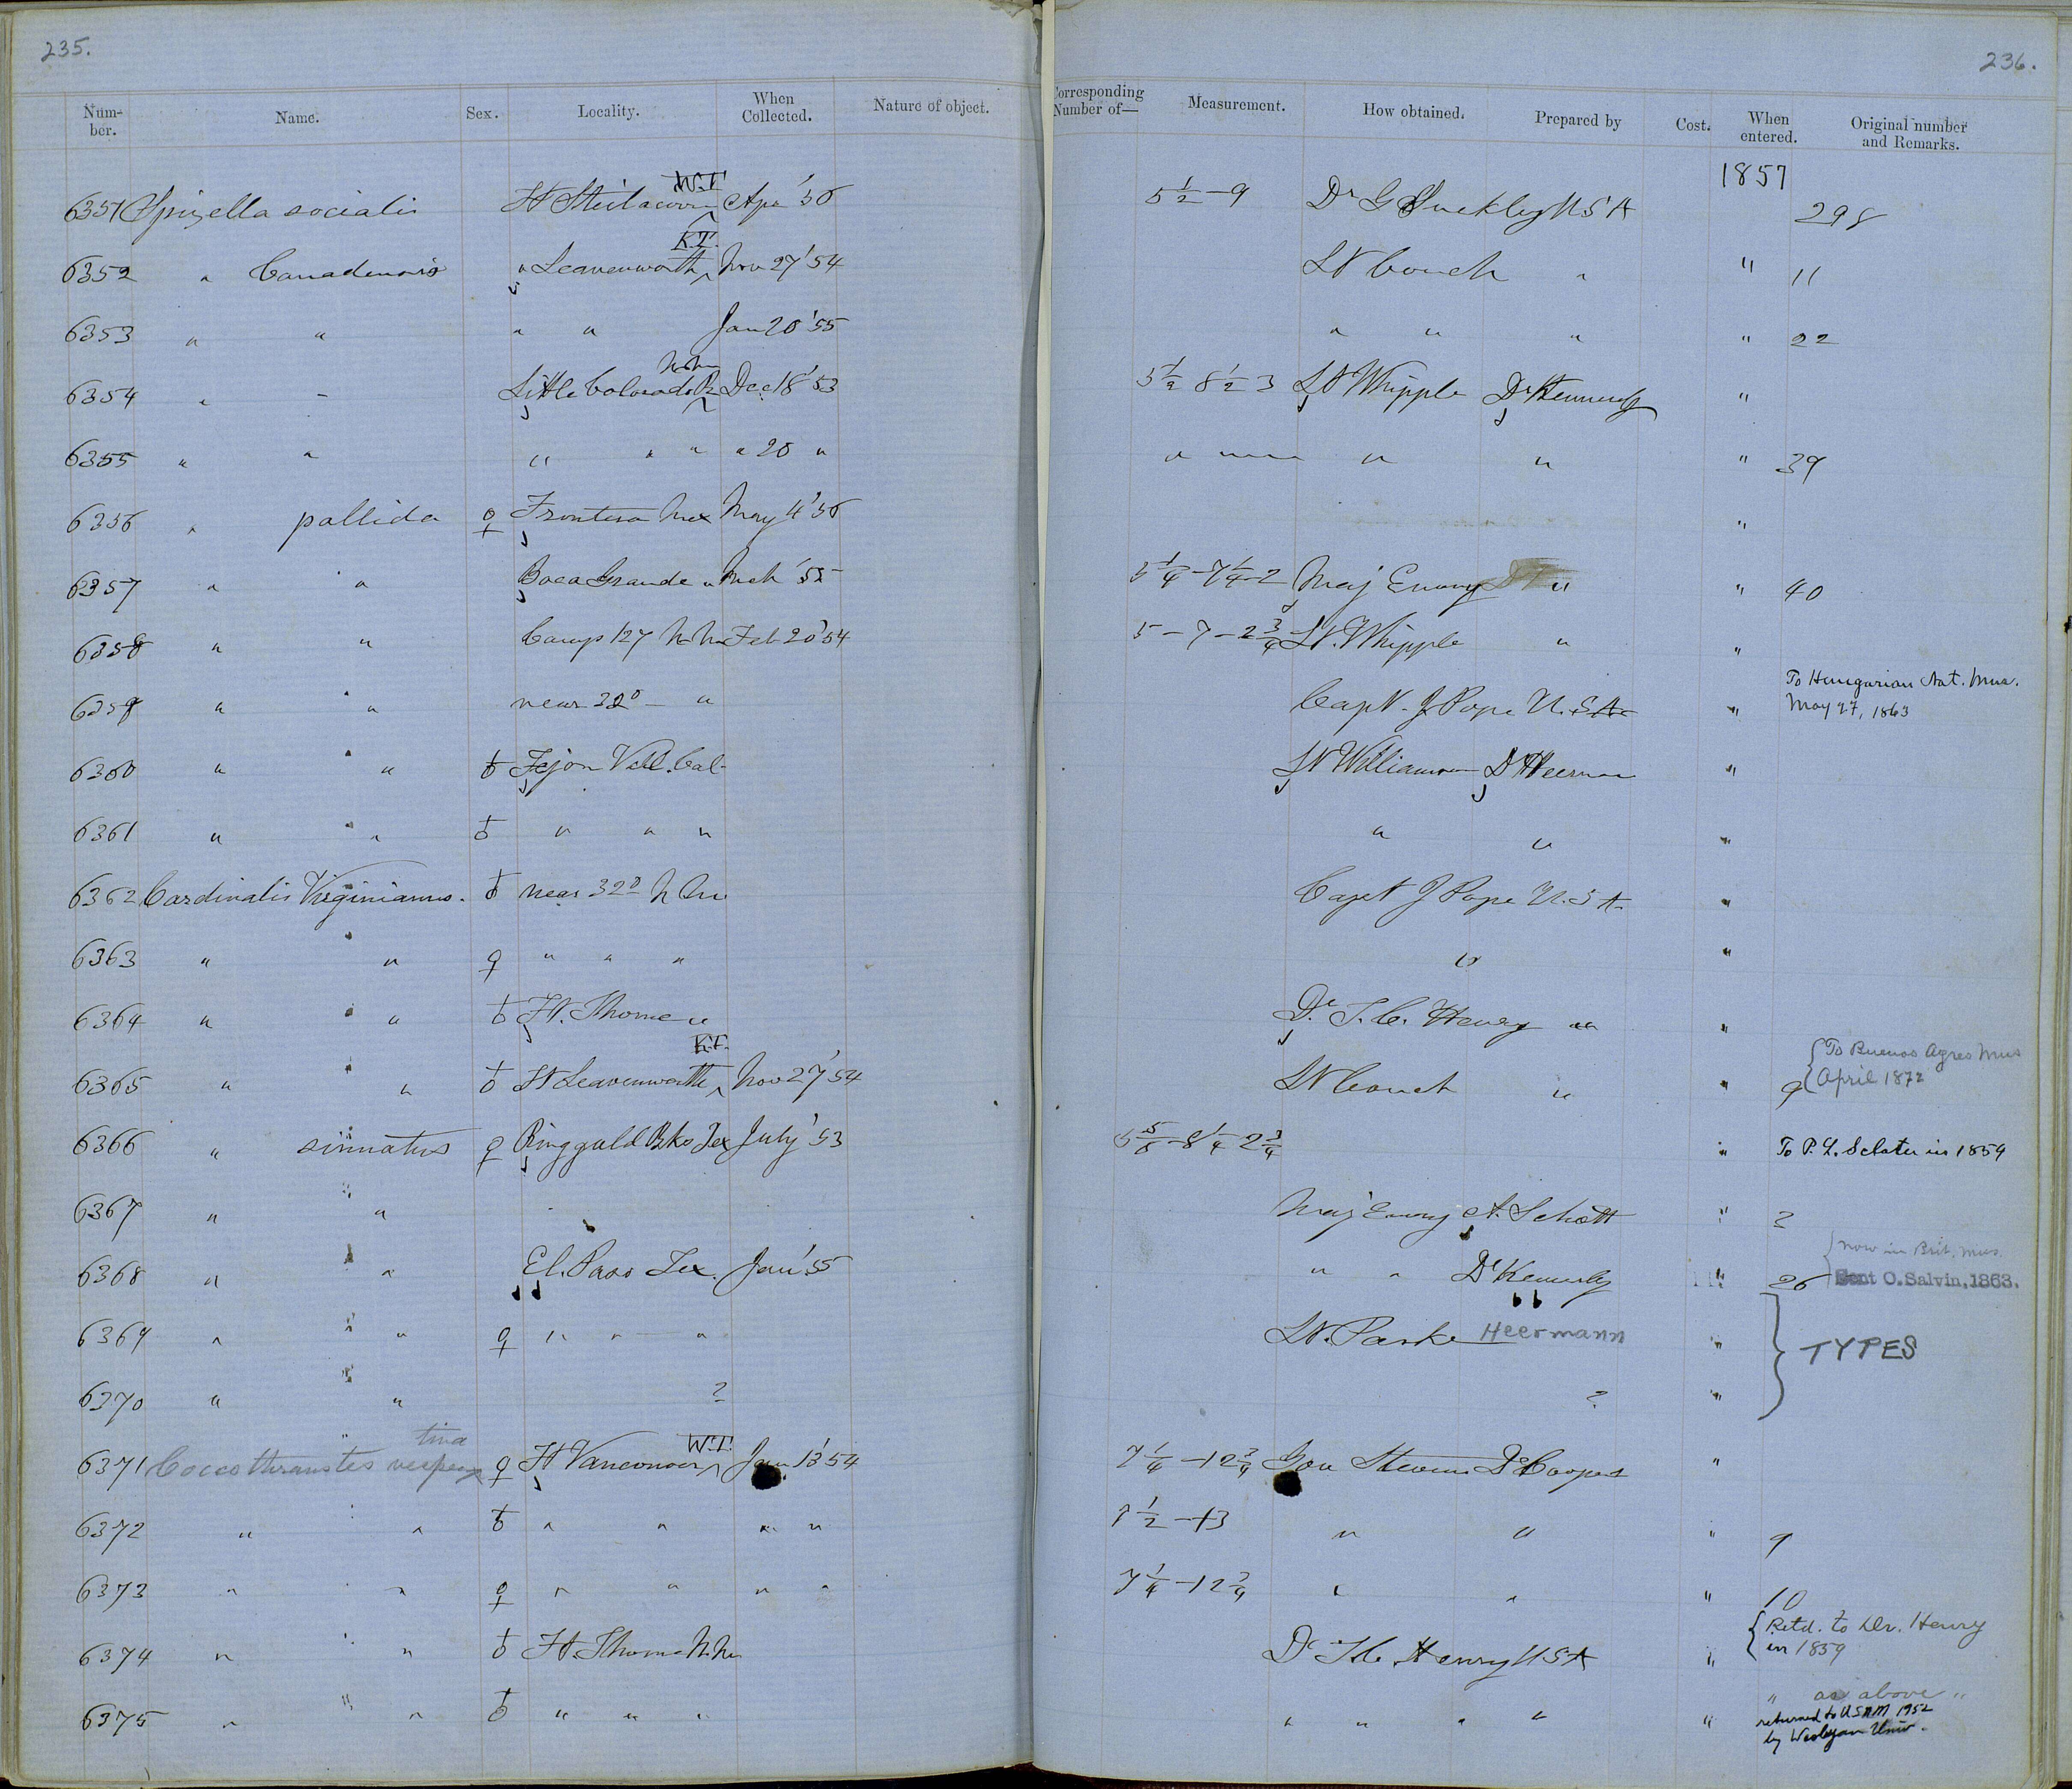 235.
236.
Num-ber. Name. Sex. Locality. When Collected. Nature of object. Corresponding Number of— Measurement. How obtained. Prepared by Cost. When entered. Original number and Remarks.
1857
6351 Spizella socialis Ft Steilacoom W.T. Apr '56 5½-9 Dr G Suckley USA 298
6352 " Canadensis " Leavenworth K.T. Nov 27 '54 Lt Couch " " 11
6353 " " " " Jan 20 '55 " " " " 22
6354 " - Little Colorado R N Mex Dec 18 '53 5½ 8½ 3 Lt Whipple Dr Kennerly "
6355 " " " " " " 20 " " " " " " 39
6356 " pallida ♀ Frontera Mex May 4 '56 "
6357 " " Boca Grande " Mch '55 5¼-7¼-2 Maj Emory " " 40
6358 " " Camp 127 N.M. Feb 20 '54 5-7-2¾ Lt. Whipple " "
6359 " " near 32° - " Capt. J Pope U.S.A. " To Hungarian Nat. Mus. May 27, 1863
6360 " " ♂ Tejon Vall. Cal. Lt Williamson Dr Heerman "
6361 " " ♂ " " " " " "
6362 Cardinalis Virginianus. ♂ near 32° N Mex Capt J Pope U.S.A. "
6363 " " ♀ " " " " "
6364 " " ♂ Ft. Thorne " Dr. T.C. Henry " "
6365 " " ♂ Ft Leavenworth K.T. Nov 27 '54 Lt Couch " " 9 { To Buenos Ayres Mus April 1872
6366 " sinuatus ♀ Ringgold Bks Tex July '53 6⅝-8¼ 2¾ " To P. L. Sclater in 1859
6367 " " Maj Emory A. Schott " 2
6368 " " El. Paso Tex. Jan '55 " " Dr Kennerly " 26 { now in Brit. Mus. Sent O. Salvin, 1863.
6369 " " ♀ " " " Lt. Parke Heermann " } TYPES
6370 " " ? ? "
6371 Coccothraustes vespertina ♀ Ft Vancouver W.T. Jan 13 '54 7¼-12¾ Gov Stevens Dr Cooper "
6372 " " ♂ " " " " 7½-13 " " " 9
6373 " " ♀ " " " " 7¼-12¾ " " " 10
6374 " " ♂ Ft. Thorne N. Mex Dr T.C. Henry USA " { Retd. to Dr. Henry in 1859
6375 " " ♂ " " " " " " " " " as above "
returned to USNM 1952
by Wesleyan Univ.